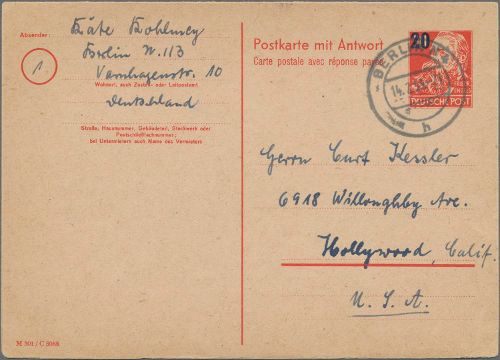 Absender:
Käte Kohlmey
Berlin N. 113
Varnhagenstr. 10
Wohnort, auch Zustell- oder Leitpostamt
Deutschland
Straße, Hausnummer, Gebäudeteil, Stockwerk oder
Postschließfachnummer;
bei Untermietern auch Name des Vermieters
M 301 / C 5088
Postkarte mit Antwort
Carte postale avec réponse payée
20
BERLIN N 4
h
DEUTSCHE POST
Herrn Curt Kessler
6918 Willoughby Ave.
Hollywood, Calif.
U. S. A.